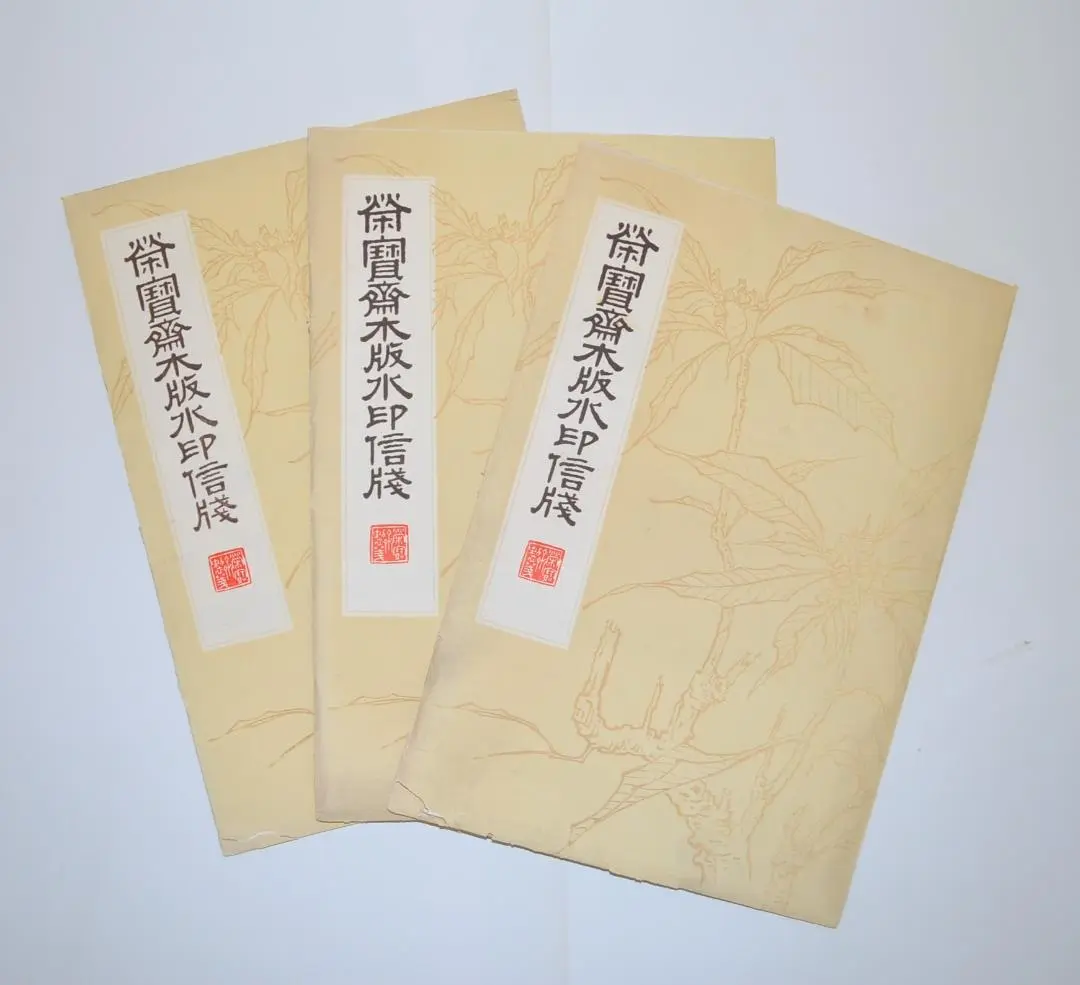 榮寶齋木版水印信牋
榮寶齋木版水印信牋
榮寶齋木版水印信牋